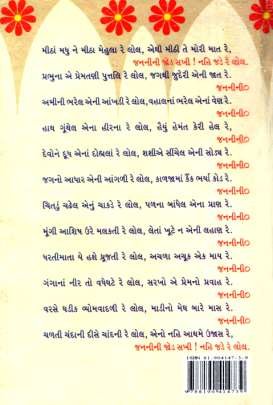 મીઠાં મધુ ને મીઠા મેહુલા રે લોલ, એથી મીઠી તે મોરી માત રે,
જનનીની જોડ સખી ! નહિ જડે રે લોલ.
પ્રભુના એ પ્રેમતણી પુતળિ રે લોલ, જગથી જુદેરી એની જાત રે,
જનનીની૦
અમીની ભરેલ એની આંખડી રે લોલ, વહાલનાં ભરેલ એનાં વેણ રે,
જનનીની૦
હાથ ગૂંથેલ એના હીરના રે લોલ, હૈયું હેમંત કેરી હેલ રે,
જનનીની૦
દેવોને દૂધ એનાં દોહ્યલાં રે લોલ, શશીએ સીંચેલ એની સોડ્ય રે,
જનનીની૦
જગનો આધાર એની આંગળી રે લોલ, કાળજામાં કૈંક ભર્યા કોડ રે,
જનનીની૦
ચિતડું ચડેલ એનું ચાકડે રે લોલ, પળના બાંધેલ એના પ્રાણ રે,
જનનીની૦
મૂંગી આશિષ ઉરે મલકતી રે લોલ, લેતાં ખૂટે ન એની લહાણ રે,
જનનીની૦
ધરતીમાતા યે હશે ધ્રુજતી રે લોલ, અચળા અચૂક એક માય રે,
જનનીની૦
ગંગાનાં નીર તો વધેઘટે રે લોલ, સરખો એ પ્રેમનો પ્રવાહ રે,
જનનીની૦
વરસે ઘડીક વ્યોમવાદળી રે લોલ, માડીનો મેઘ બારે માસ રે,
જનનીની૦
ચળતી ચંદાની દીસે ચાંદની રે લોલ, એનો નહિ આથમે ઉજાસ રે,
જનનીની જોડ સખી ! નહિ જડે રે લોલ.